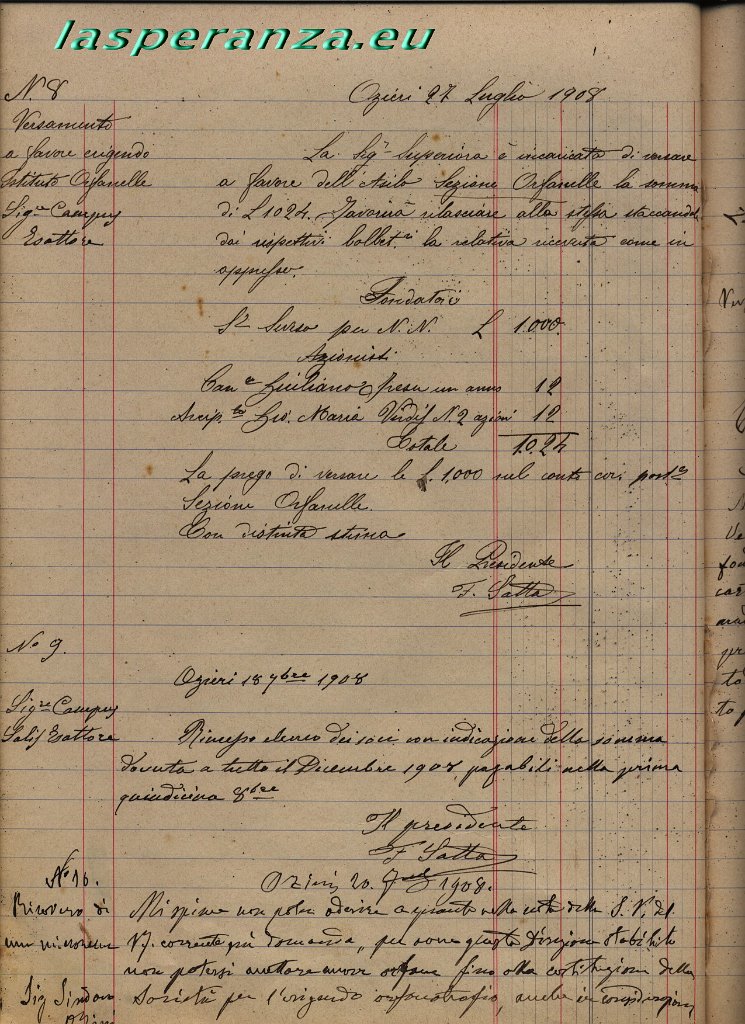 lasperanza.eu
N. 8
Ozieri 27 Luglio 1908
Versamento
a favore erigendo
Istituto Orfanelle
Sig.re Campus
Esattore
La Sig.ra Superiora è incaricata di versare
a favore dell'Asilo Sezione Orfanelle la somma
di L 1024. Favorirà rilasciare alla stessa staccandola
dai rispettivi bollett.ri la relativa ricevuta come in
appresso.
Fondatori
per N. N. L 1.000
Azionisti
Can.co Giuliano un anno 12
Arcip.te Gio. Maria Virdis N. 2 azioni 12
Totale 1024
La prego di versare le L. 1,000 nel conto cor. post.le
Sezione Orfanelle.
Con distinta stima
Il Presidente
F. Satta
N.o 9.
Ozieri 18 7bre 1908
Sig.re Campus
Salis Esattore
Rimesso elenco dei soci con indicazione della somma
dovuta a tutto il Dicembre 1908, pagabili nella prima
quindicina 8bre
Il presidente
F Satta
N.o 10.
Ozieri 20 1908.
Ricovero di
una minorenne
Sig. Sindaco
Ozieri
Mi spiace non poter aderire a quanto nella nota della S. V. del
17 corrente più domanda, per avere questa Direzione stabilito
non potersi accettare ancora orfane fino alla costituzione della
Società per l'erigendo orfanotrofio, anche in considerazione